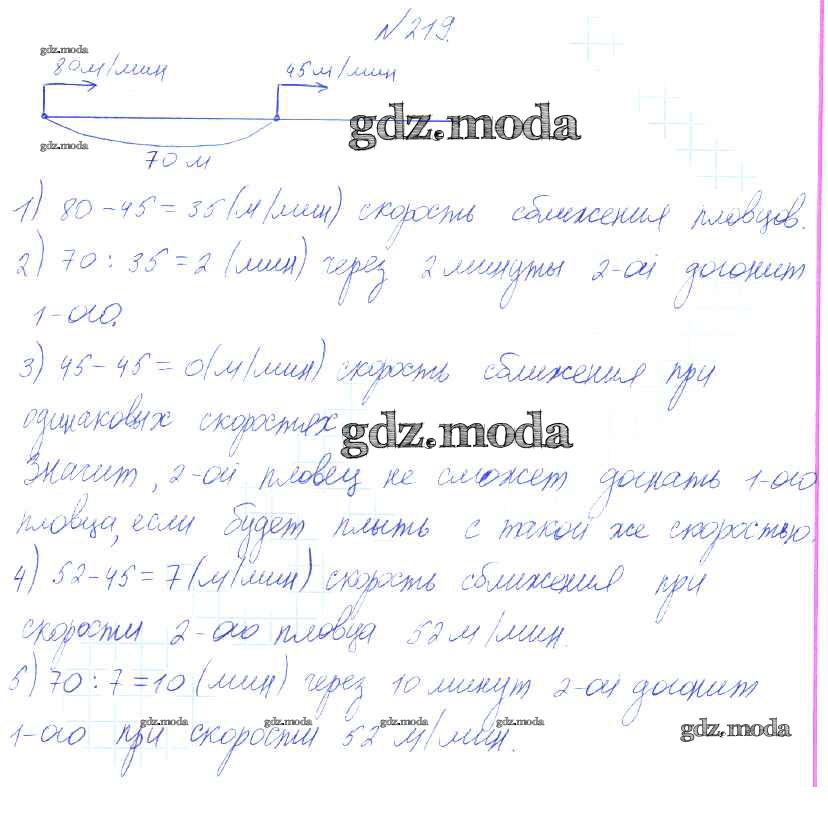 №219.
gdz.moda
80м/мин 45м/мин
gdz.moda
gdz.moda
70 м
1) 80-45=35(м/мин) скорость сближения пловцов.
2) 70:35=2(мин) через 2 минуты 2-ой догонит
1-ого.
3) 45-45=0(м/мин) скорость сближения при
одинаковых скоростях
gdz.moda
Значит, 2-ой пловец не сможет догнать 1-ого
пловца, если будет плыть с такой же скоростью.
4) 52-45=7(м/мин) скорость сближения при
скорости 2-ого пловца 52м/мин.
5) 70:7=10(мин) через 10 минут 2-ой догонит
gdz.moda gdz.moda gdz.moda gdz.moda gdz.moda
1-ого при скорости 52 м/мин.